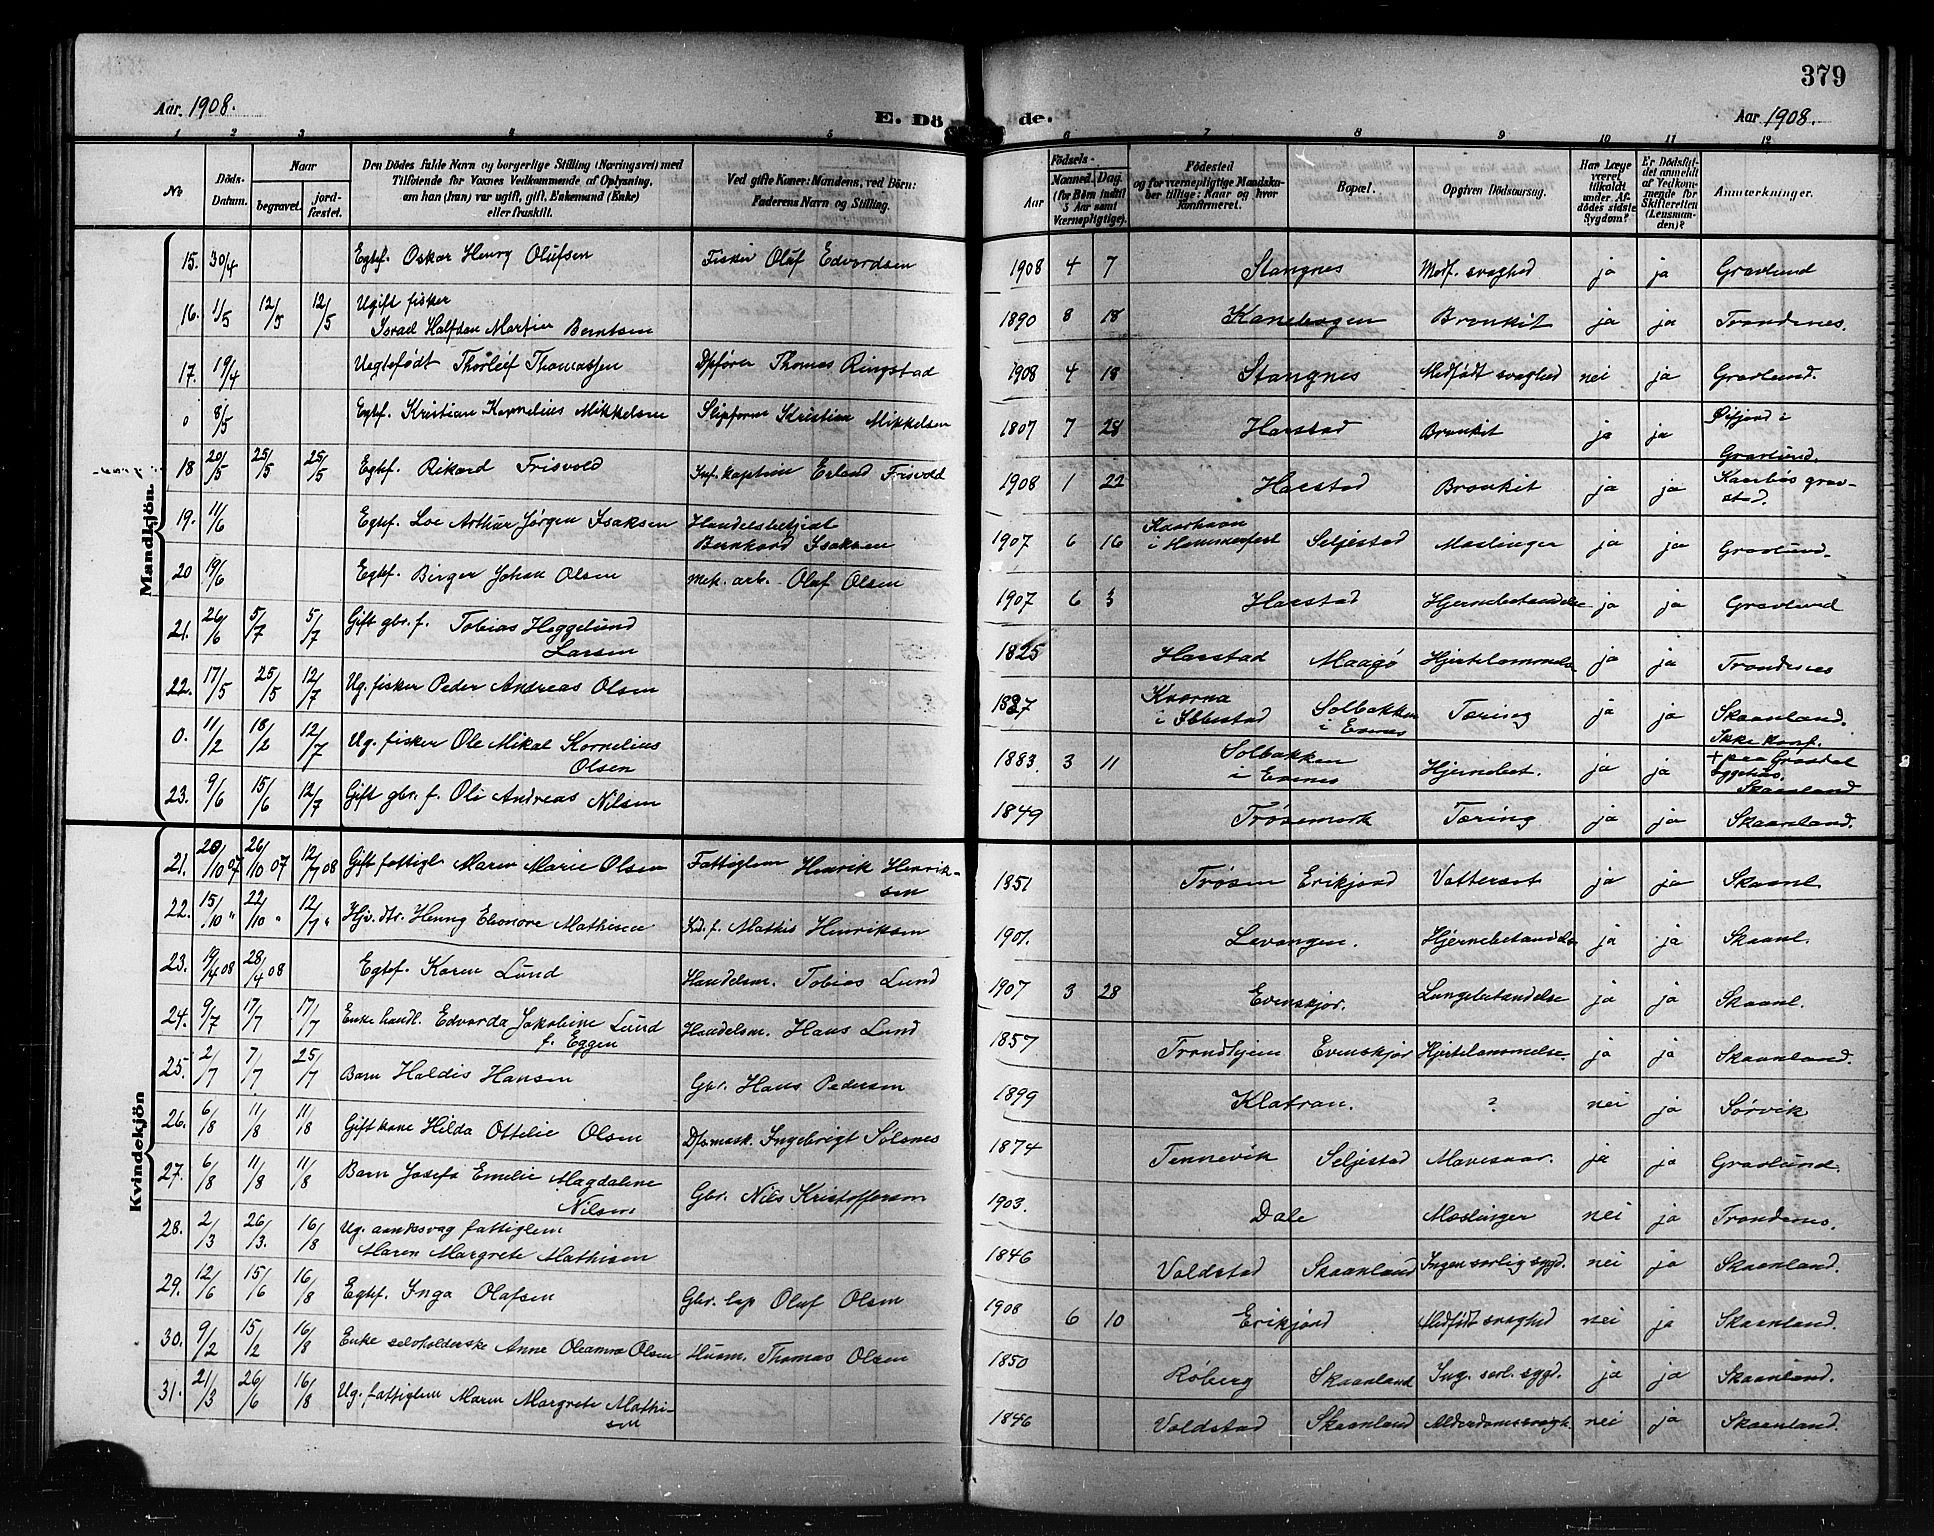 379
Aar 1908.
E. Dö de.
Aar 1908.
1 2 3 4 5 6 7 8 9 10 11 12
No
Döds-Datum.
Naar
begravet.
jordfæstet.
Den Dödes fulde Navn og borgerlige Stilling (Næringsvei) med
Tilföiende for Voxnes Vedkommende af Oplysning,
om han (hun) var ugift, gift, Enkemand (Enke)
eller fraskilt.
Ved gifte Koner: Mandens, ved Börn:
Faderens Navn og Stilling.
Födsels-
Aar
Maaned. Dag.
(for Börn indtil
5 Aar samt
Værnepligtige).
Födested
og for værnepligtige Mandskaber tillige: Naar og hvor
konfirmeret.
Bopæl.
Opgiven Dödsaarsag.
Har Læge været tilkaldt under Afdödes sidste Sygdom?
Er Dödsfaldet anmeldt af Vedkommende for Skifteretten (Lensmanden)?
Anmærkninger.
Mandkjön
15. 30/4 Egtef. Oskar Henry Olufsen Fisker Oluf Edvardsen 1908 4 7 Stangnes Medf. svaghed ja ja Gravlund
16. 1/5 12/5 12/5 Ugift fisker
Israel Halfdan Martin Berntsen 1890 8 18 Kanebogen Bronkit ja ja Trondenes.
17. 19/4 Uegtefødt Thorleif Thomassen Thomas Ringstad 1908 4 18 Stangnes Medfødt svaghed nei ja Gravlund.
0 8/5 Egtef. Kristian Kornelius Mikkelsen Kristian Mikkelsen 1807 7 28 Harstad Bronkit ja ja Øifjord i
Gravlund.
18 20/5 25/5 25/5 Egtef. Rikard Frisvold Inf. kaptein Erland Frisvold 1908 1 22 Harstad Bronkit ja ja Kaarbøs gravstad.
19. 11/6 Egtef. Loe Arthur Jørgen Isaksen Handelsbetjent
Bernhard Isaksen 1907 6 16 Kaarhavn
i Hammerfest Seljestad Meslinger ja ja Gravlund.
20 19/6 Egtef. Birger Johan Olsen Mek. arb. Oluf Olsen 1907 6 3 Harstad Hjernebetændelse ja ja Gravlund
21. 26/6 5/7 5/7 Gift gbr. f. Tobias Heggelund
Larsen 1825 Harstad Maagø Hjertelammelse ja ja Trondenes
22. 17/5 25/5 12/7 Ug. fisker Peder Andreas Olsen 1887 Kvarna
i Ibbestad Solbakken
i Evenes Tæring ja ja Skaanland.
0. 11/2 18/2 12/7 Ug. fisker Ole Mikal Kornelius
Olsen 1883. 3 11 Solbakken
i Evenes Hjernebet. ja ja Ikke konf.
+ paa Skaanland
23. 9/6 15/6 12/7 Gift gbr. f. Oli Andreas Nilsen 1849 Trøsemark Tæring ja ja Skaanland.
Kvindekjön
21. 20/10 07 26/10 07 12/7 08 Gift fattigl. Maren Marie Olsen Fattiglem Henrik Henriksen 1851 Trøsen Erikjord Vattersot ja ja Skaanl.
22. 15/10 " 22/10 " 12/7 " Hjv. dtr. Henny Eleonore Mathisen Mathis Henriksen 1901. Levangen. Hjernebetændelse ja ja Skaanl.
23. 19/4 08 28/4 08 Egtef. Karen Lund Handelsm. Tobias Lund 1907 3 28 Evenskjær. Lungebetændelse ja ja Skaanl.
24. 9/7 17/7 17/7 Enke handl. Edvarda Jakobine Lund
f. Eggen Handelsm. Hans Lund 1857 Trondhjem Evenskjær Hjertelammelse ja ja Skaanland.
25. 2/7 7/7 25/7 Barn Haldis Hansen Gbr. Hans Pedersen 1899 Klatran. ? nei ja Sørvik
26. 6/8 11/8 11/8 Gift kone Hilda Ottelie Olsen Dfsmask. Ingebrigt Solsnes 1874 Tennevik Seljestad Mavesaar. ja ja Gravlund.
27. 6/8 11/8 11/8 Barn Josefa Emelie Magdalene
Nilsen Gbr. Nils Kristoffersen 1903. Dale Meslinger nei ja Trondenes.
28. 2/3 26/3. 16/8 Ug. aandssvag fattiglem
Maren Margrete Mathisen 1846 Voldstad Skaanland Ingen særlig sygd. nei ja Skaanland.
29. 12/6 15/6 16/8 Egtef. Inga Olafsen Gbr. lap Oluf Olsen 1908 6 10 Erikjord Medfødt svaghed nei ja Skaanland.
30. 9/2 15/2 16/8 Enke selvholderske Anne Oleanna Olsen Husm. Thomas Olsen 1850 Røberg Skaanland Ing. særl. sygd. ja ja Skaanland.
31. 21/3 26/6 16/8 Ug. fattiglem Maren Margrete Mathisen 1846 Voldstad Skaanland Alderdomssvagh. nei ja Skaanland.